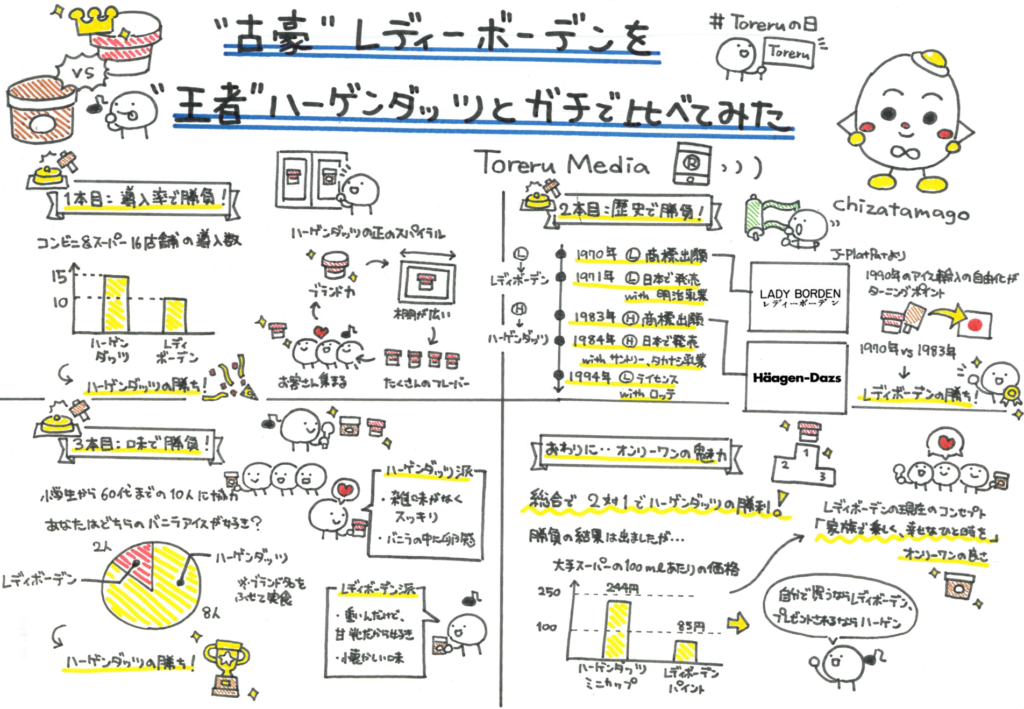 "古豪" レディーボーデンを
"王者" ハーゲンダッツとガチで比べてみた
VS
#Toreruの日
Toreru
Toreru Media
R
chizatamago
1本目：導入率で勝負！
コンビニ&スーパー16店舗の導入数
15
10
ハーゲン
ダッツ
レディ
ボーデン
ハーゲンダッツの勝ち！
ハーゲンダッツの正のスパイラル
ブランド力
棚が広い
たくさんのフレーバー
お客さん集まる
2本目：歴史で勝負！
J-PlatPatより
L
レディボーデン
H
ハーゲンダッツ
1970年 L 商標出願
1971年 L 日本で発売
with 明治乳業
1983年 H 商標出願
1984年 H 日本で発売
with サントリー、タカナシ乳業
1994年 L ライセンス
with ロッテ
LADY BORDEN
レディーボーデン
Häagen-Dazs
1990年のアイス輸入の自由化が
ターニングポイント
1970年 vs 1983年
レディボーデンの勝ち！
3本目：味で勝負！
小学生から60代までの10人に協力
あなたはどちらのバニラアイスが好き？
2人
レディボーデン
ハーゲンダッツ
8人
※ブランド名を
ふせて実食
ハーゲンダッツの勝ち！
ハーゲンダッツ派
・雑味がなく
スッキリ
・バニラの中に卵感
レディボーデン派
・重いんだけど、
甘党だから好き
・小懐かしい味
おわりに‥オンリーワンの魅力
1
2
3
総合で2対1でハーゲンダッツの勝利！
勝負の結果は出ましたが…
大手スーパーの100mlあたりの価格
250
100
244円
85円
ハーゲンダッツ
ミニカップ
レディボーデン
パイント
レディボーデンの現在のコンセプト
「家族で楽しく、幸せなひと時を」
オンリーワンの良さ
自分で買うならレディボーデン、
プレゼントされるならハーゲン